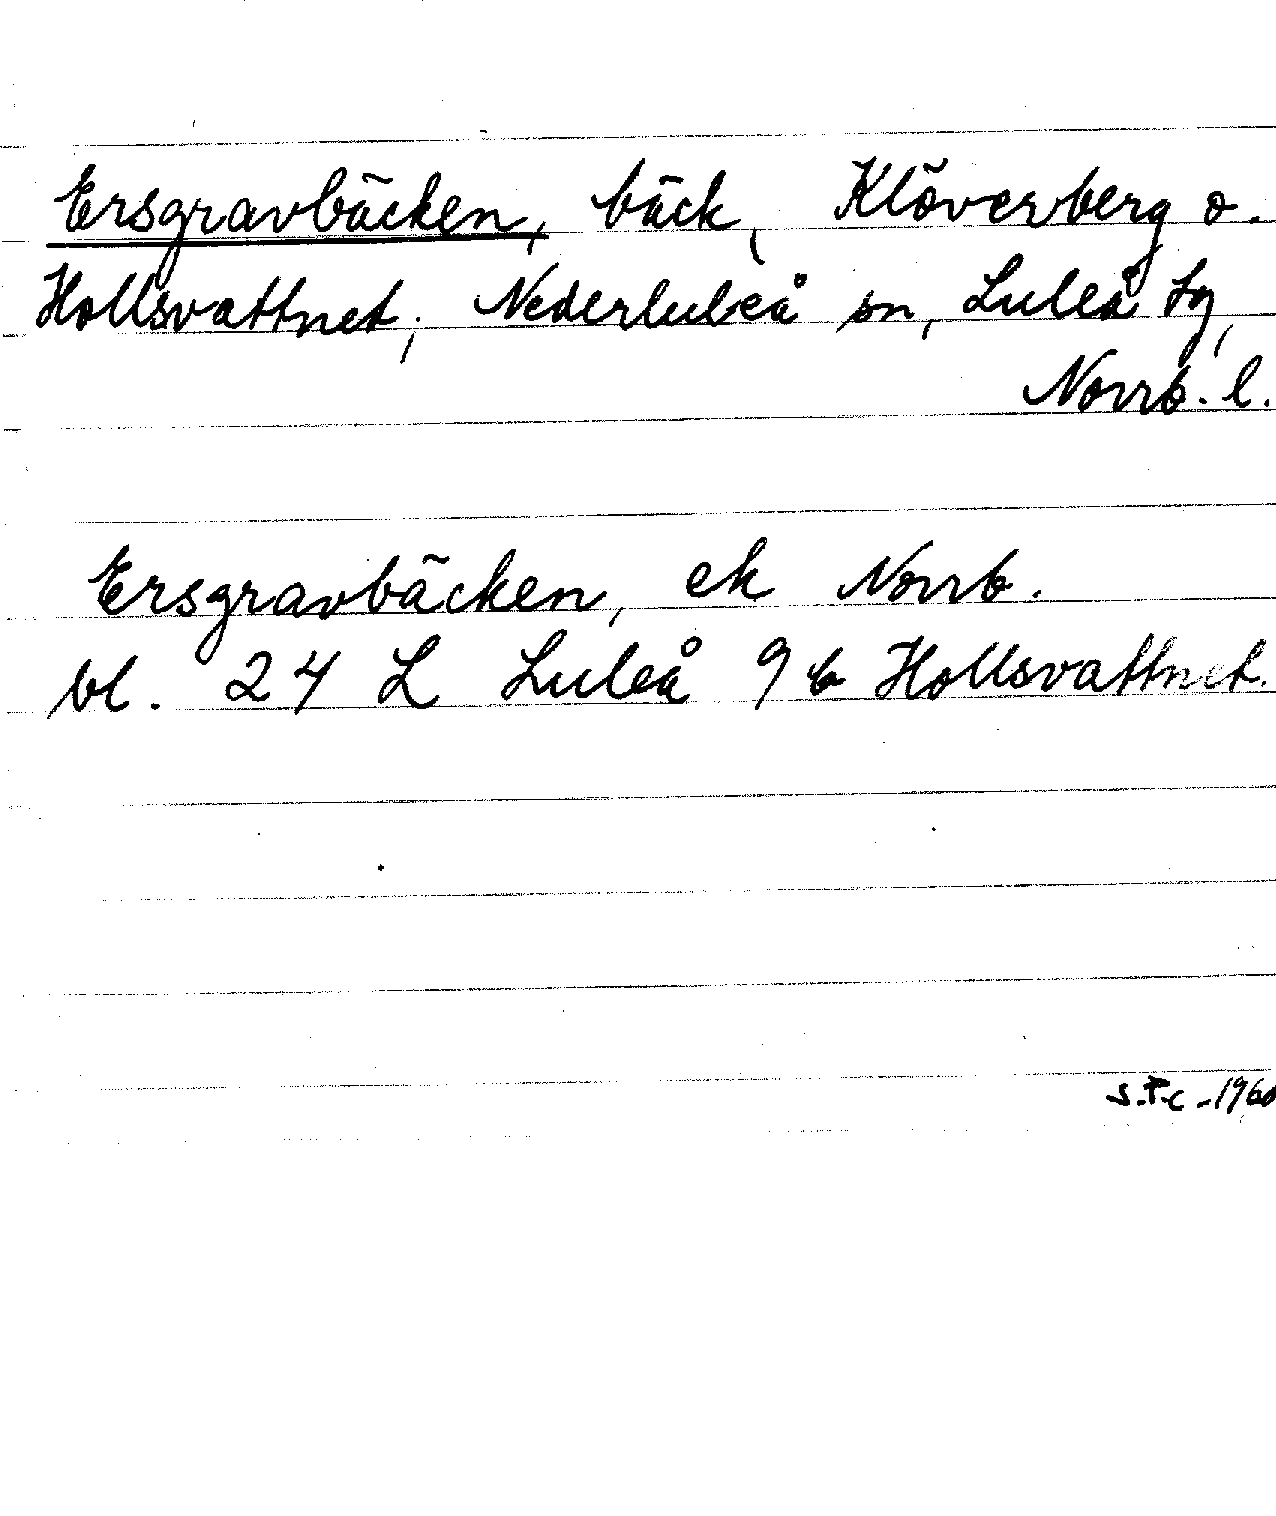 Ersgravbäcken, bäck, Klöverberg o.
Hollsvattnet, Nederluleå sn, Luleå tg,
Norrb. l.
Ersgravbäcken, ek Norrb.
bl. 24 L Luleå 9 b Hollsvattnet.
S.F.C -1960